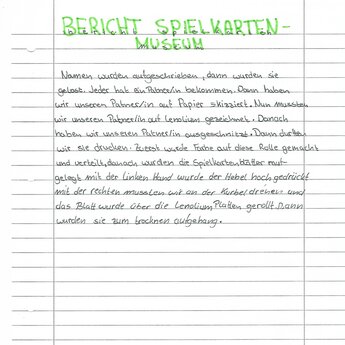 BERICHT SPIELKARTEN-
MUSEUM
Namen wurden aufgeschrieben, dann wurden sie
gelost. Jeder hat ein Patner/in bekommen. Dann haben
wir unseren Patner/in auf Papier skizziert. Nun mussten
wir unseren Patner/in auf Lenolium gezeichnet. Danach
haben wir unseren Patner/in ausgeschnitzt. Dann durften
wir sie drucken. Zuerst wurde Farbe auf diese Rolle gemacht
und verteilt, danach wurden die Spielkartenblätter
gelegt mit der linken Hand wurde der Hebel hoch gedrückt
mit der rechten mussten wir an der Kurbel drehen und
das Blatt wurde über die Lenolium Platten gerollt. Dann
wurden sie zum trocknen aufgehang.